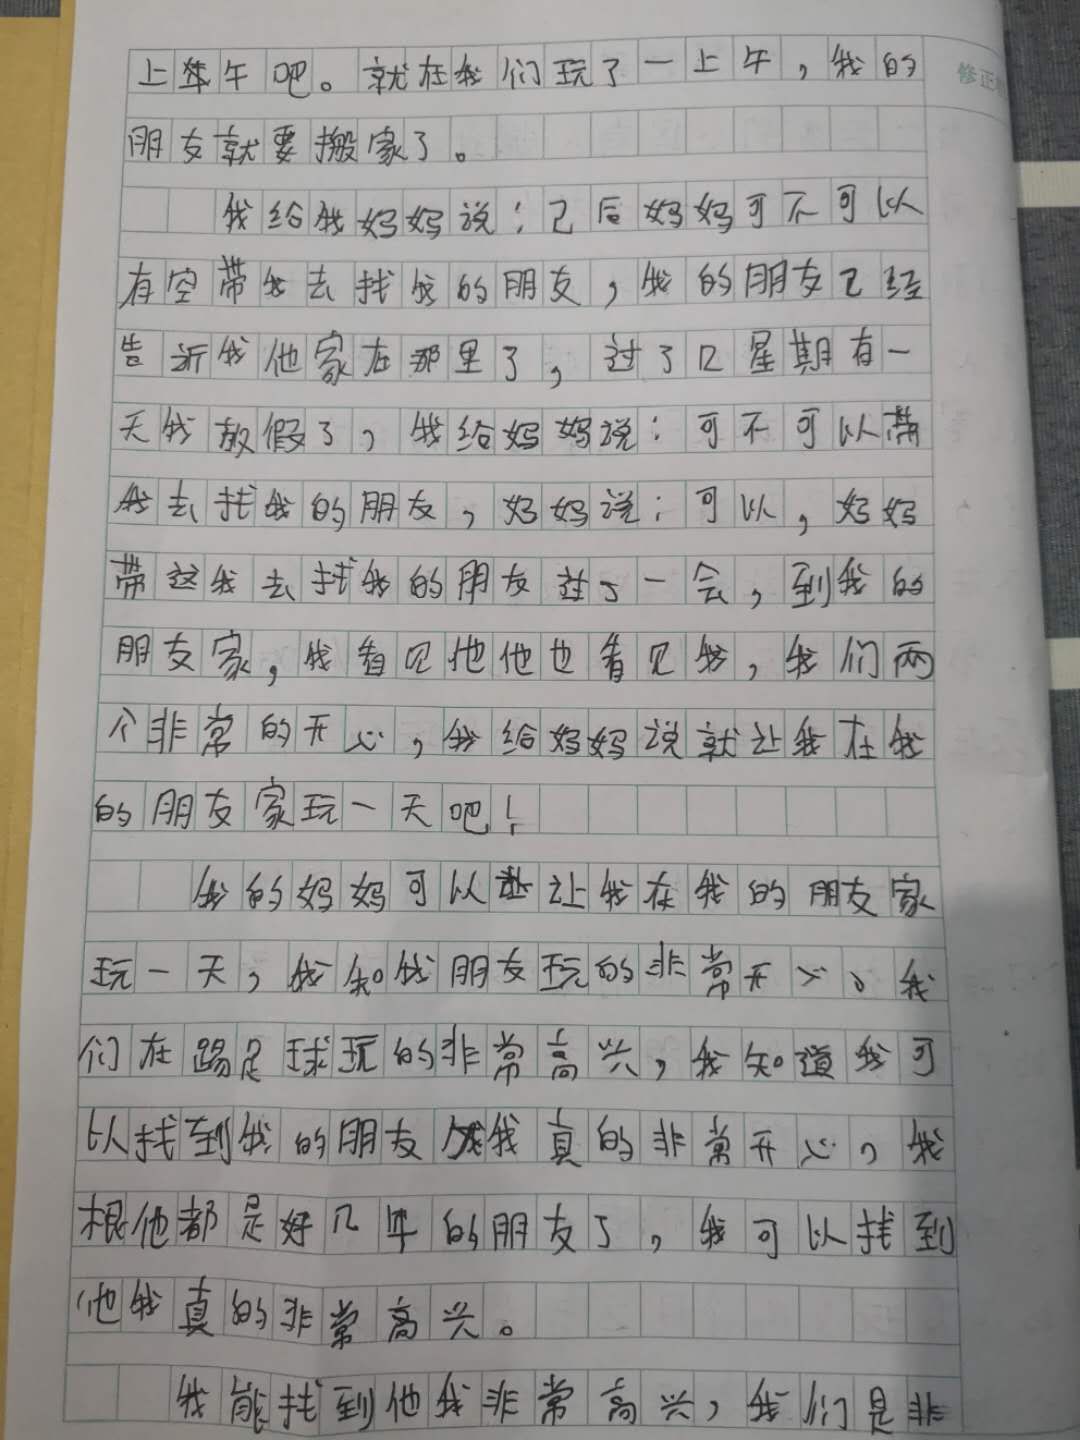 上午吧。就在我们玩了一上午，我的
修正
朋友就要搬家了。
我给我妈妈说：己后妈妈可不可以
有空带我去找我的朋友，我的朋友已经
告诉我他家在那里了，过了几星期有一
天我放假了，我给妈妈说：可不可以带
我去找我的朋友，妈妈说：可以，妈妈
带这我去找我的朋友过了一会，到我的
朋友家，我看见他他也看见我，我们两
个非常的开心，我给妈妈说就让我在我
的朋友家玩一天吧！
我的妈妈可以让我在我的朋友家
玩一天，我知我朋友玩的非常开心、我
们在踢足球玩的非常高兴，我知道我可
以找到我的朋友我真的非常开心，我
根他都是好几年的朋友了，我可以找到
他我真的非常高兴。
我能找到他我非常高兴，我们是非